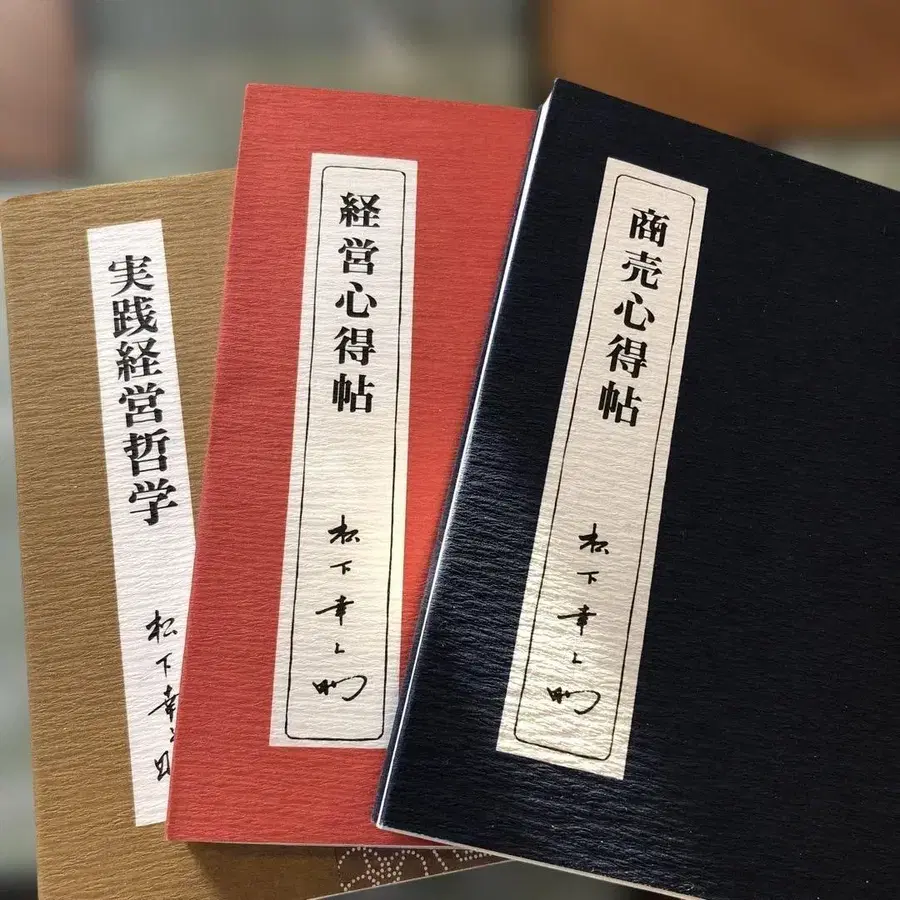 実践経営哲学
松下幸之助
経営心得帖
松下幸之助
商売心得帖
松下幸之助